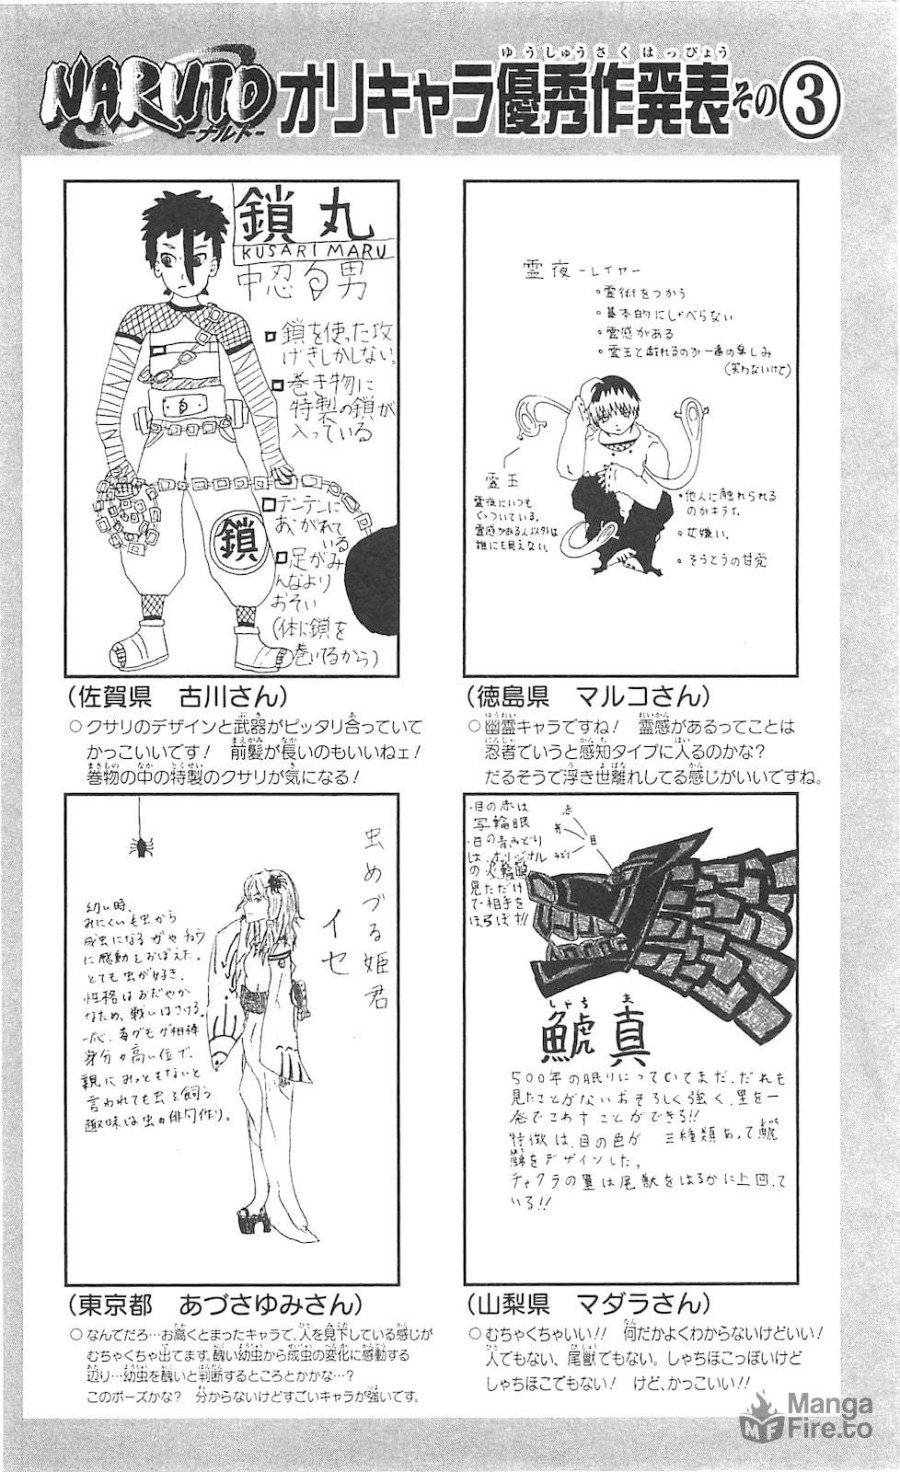 NARUTO
-ナルト-
オリキャラ優秀作発表その③
ゆうしゅうさくはっぴょう
鎖丸
KUSARI MARU
中忍 男
鎖を使った攻
げきしかしない。
巻き物に
特製の鎖が
入っている
テンテンに
あこがれて
いる
足がみ
んなより
おそい
(体に鎖を
巻いてるから)
鎖
(佐賀県 古川さん)
○クサリのデザインと武器がピッタリ合っていて
かっこいいです! 前髪が長いのもいいねェ!
巻物の中の特製のクサリが気になる!
霊夜-レイヤー
・霊術をつかう
・基本的にしゃべらない
・霊感がある
・霊王と戯れるのが一番の楽しみ
(笑わないけど)
霊王
霊夜にいつも
くっついている。
霊感がある人以外は
誰にも見えない。
・他人に触れられる
のがキライ。
・女嫌い。
・そうとうの甘党
(徳島県 マルコさん)
○幽霊キャラですね! 霊感があるってことは
忍者でいうと感知タイプに入るのかな?
だるそうで浮き世離れしてる感じがいいですね。
虫めづる姫君
イセ
幼い時、
みにくいも虫から
成虫になるガやチョウ
に感動をおぼえた。
とても虫が好き。
性格はおだやか
なため、戦いはさける。
一応、毒グモが相棒
身分の高い位で、
親にみっともないと
言われても虫を飼う
趣味は虫の俳句作り。
(東京都 あづさゆみさん)
○なんでだろ…お高くとまったキャラで、人を見下している感じが
むちゃくちゃ出てます。醜い幼虫から成虫の変化に感動する
辺り…幼虫を醜いと判断するところとかかな…?
このポーズかな? 分からないけどすごいキャラが強いです。
・目の赤は
写輪眼
・目の青みどり
は、オリジナル
の火輪眼
見ただけ
で相手を
ほろぼす!!
赤
青
みどり
目
しゃち ま
鯱真
500年の眠りについていてまだ、だれも
見たことがないおそろしく強く、星を一
発でこわすことができる!!
特徴は、目の色が 三種類あって鯱
鉾をデザインした。
チャクラの量は尾獣をはるかに上回って
いる!!
(山梨県 マダラさん)
○むちゃくちゃいい!! 何だかよくわからないけどいい!
人でもない、尾獣でもない。しゃちほこっぽいけど
しゃちほこでもない! けど、かっこいい!!
MF
Manga
Fire.to